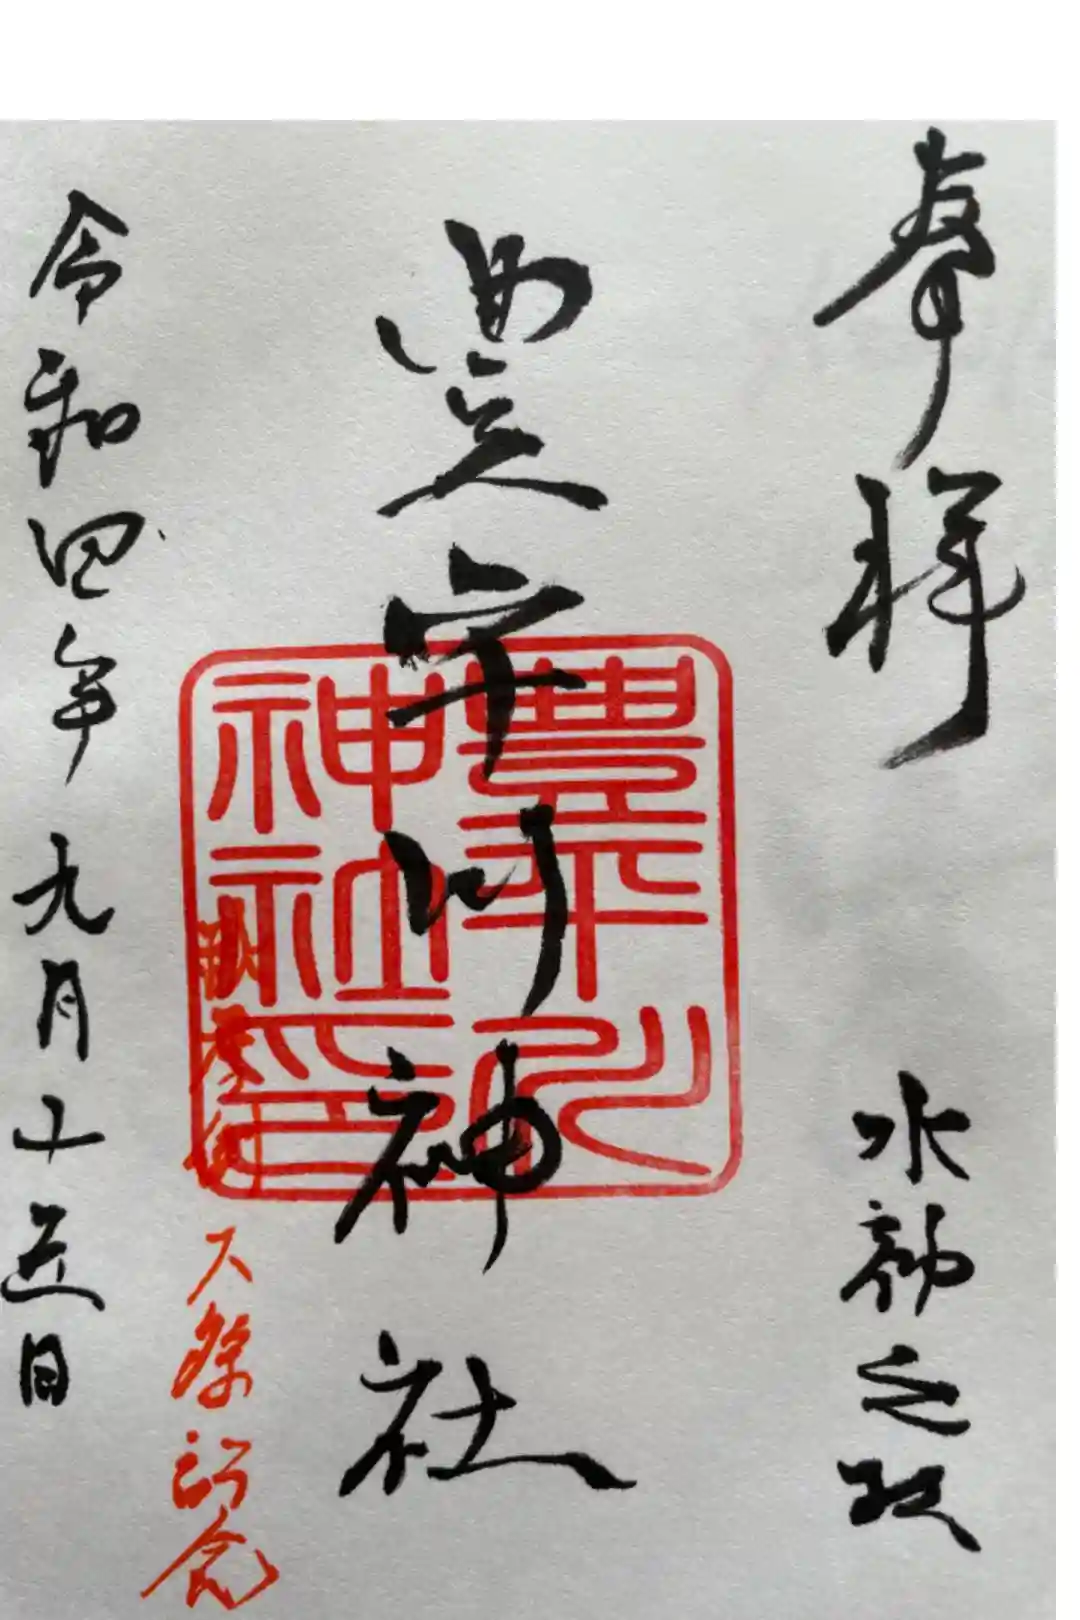 奉拝
水神之
豊平川神社
豊平川
神社印
秋季例大祭記念
令和四年九月十五日